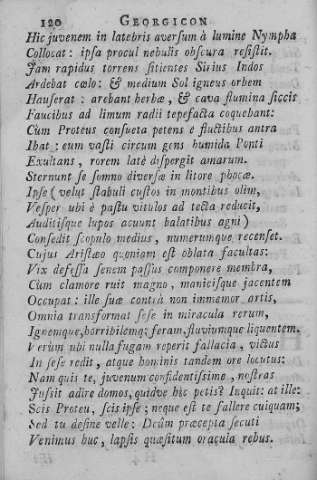 120 GEORGICON
Hic juvenem in latebris aversum à lumine Nympha
Collocat: ipsa procul nebulis obscura resistit.
Jam rapidus torrens sitientes Sirius Indos
Ardebat cælo: & medium Sol igneus orbem
Hauserat: arebant herbæ, & cava flumina siccis
Faucibus ad limum radii tepefacta coquebant:
Cùm Proteus consueta petens è fluctibus antra
Ibat: eum vasti circum gens humida Ponti
Exultans, rorem latè dispergit amarum.
Sternunt se somno diversæ in litore phocæ.
Ipse (velut stabuli custos in montibus olim,
Vesper ubi è pastu vitulos ad tecta reducit,
Auditisque lupos acuunt balatibus agni)
Consedit scopulo medius, numerumque recenset.
Cujus Aristæo quoniam est oblata facultas:
Vix defessa senem passus componere membra,
Cum clamore ruit magno, manicisque jacentem
Occupat: ille suæ contrà non immemor artis,
Omnia transformat sese in miracula rerum,
Ignemque, horribilemq; feram, fluviumque liquentem.
Verùm ubi nulla fugam reperit fallacia, victus
In sese redit, atque hominis tandem ore locutus:
Nam quis te, juvenum confidentissime, nostras
Jussit adire domos, quidve hic petis? Inquit: at ille:
Scis Proteu, scis ipse; neque est te fallere cuiquam;
Sed tu desine velle: Deûm præcepta secuti
Venimus huc, lapsis quæsitum oracula rebus.